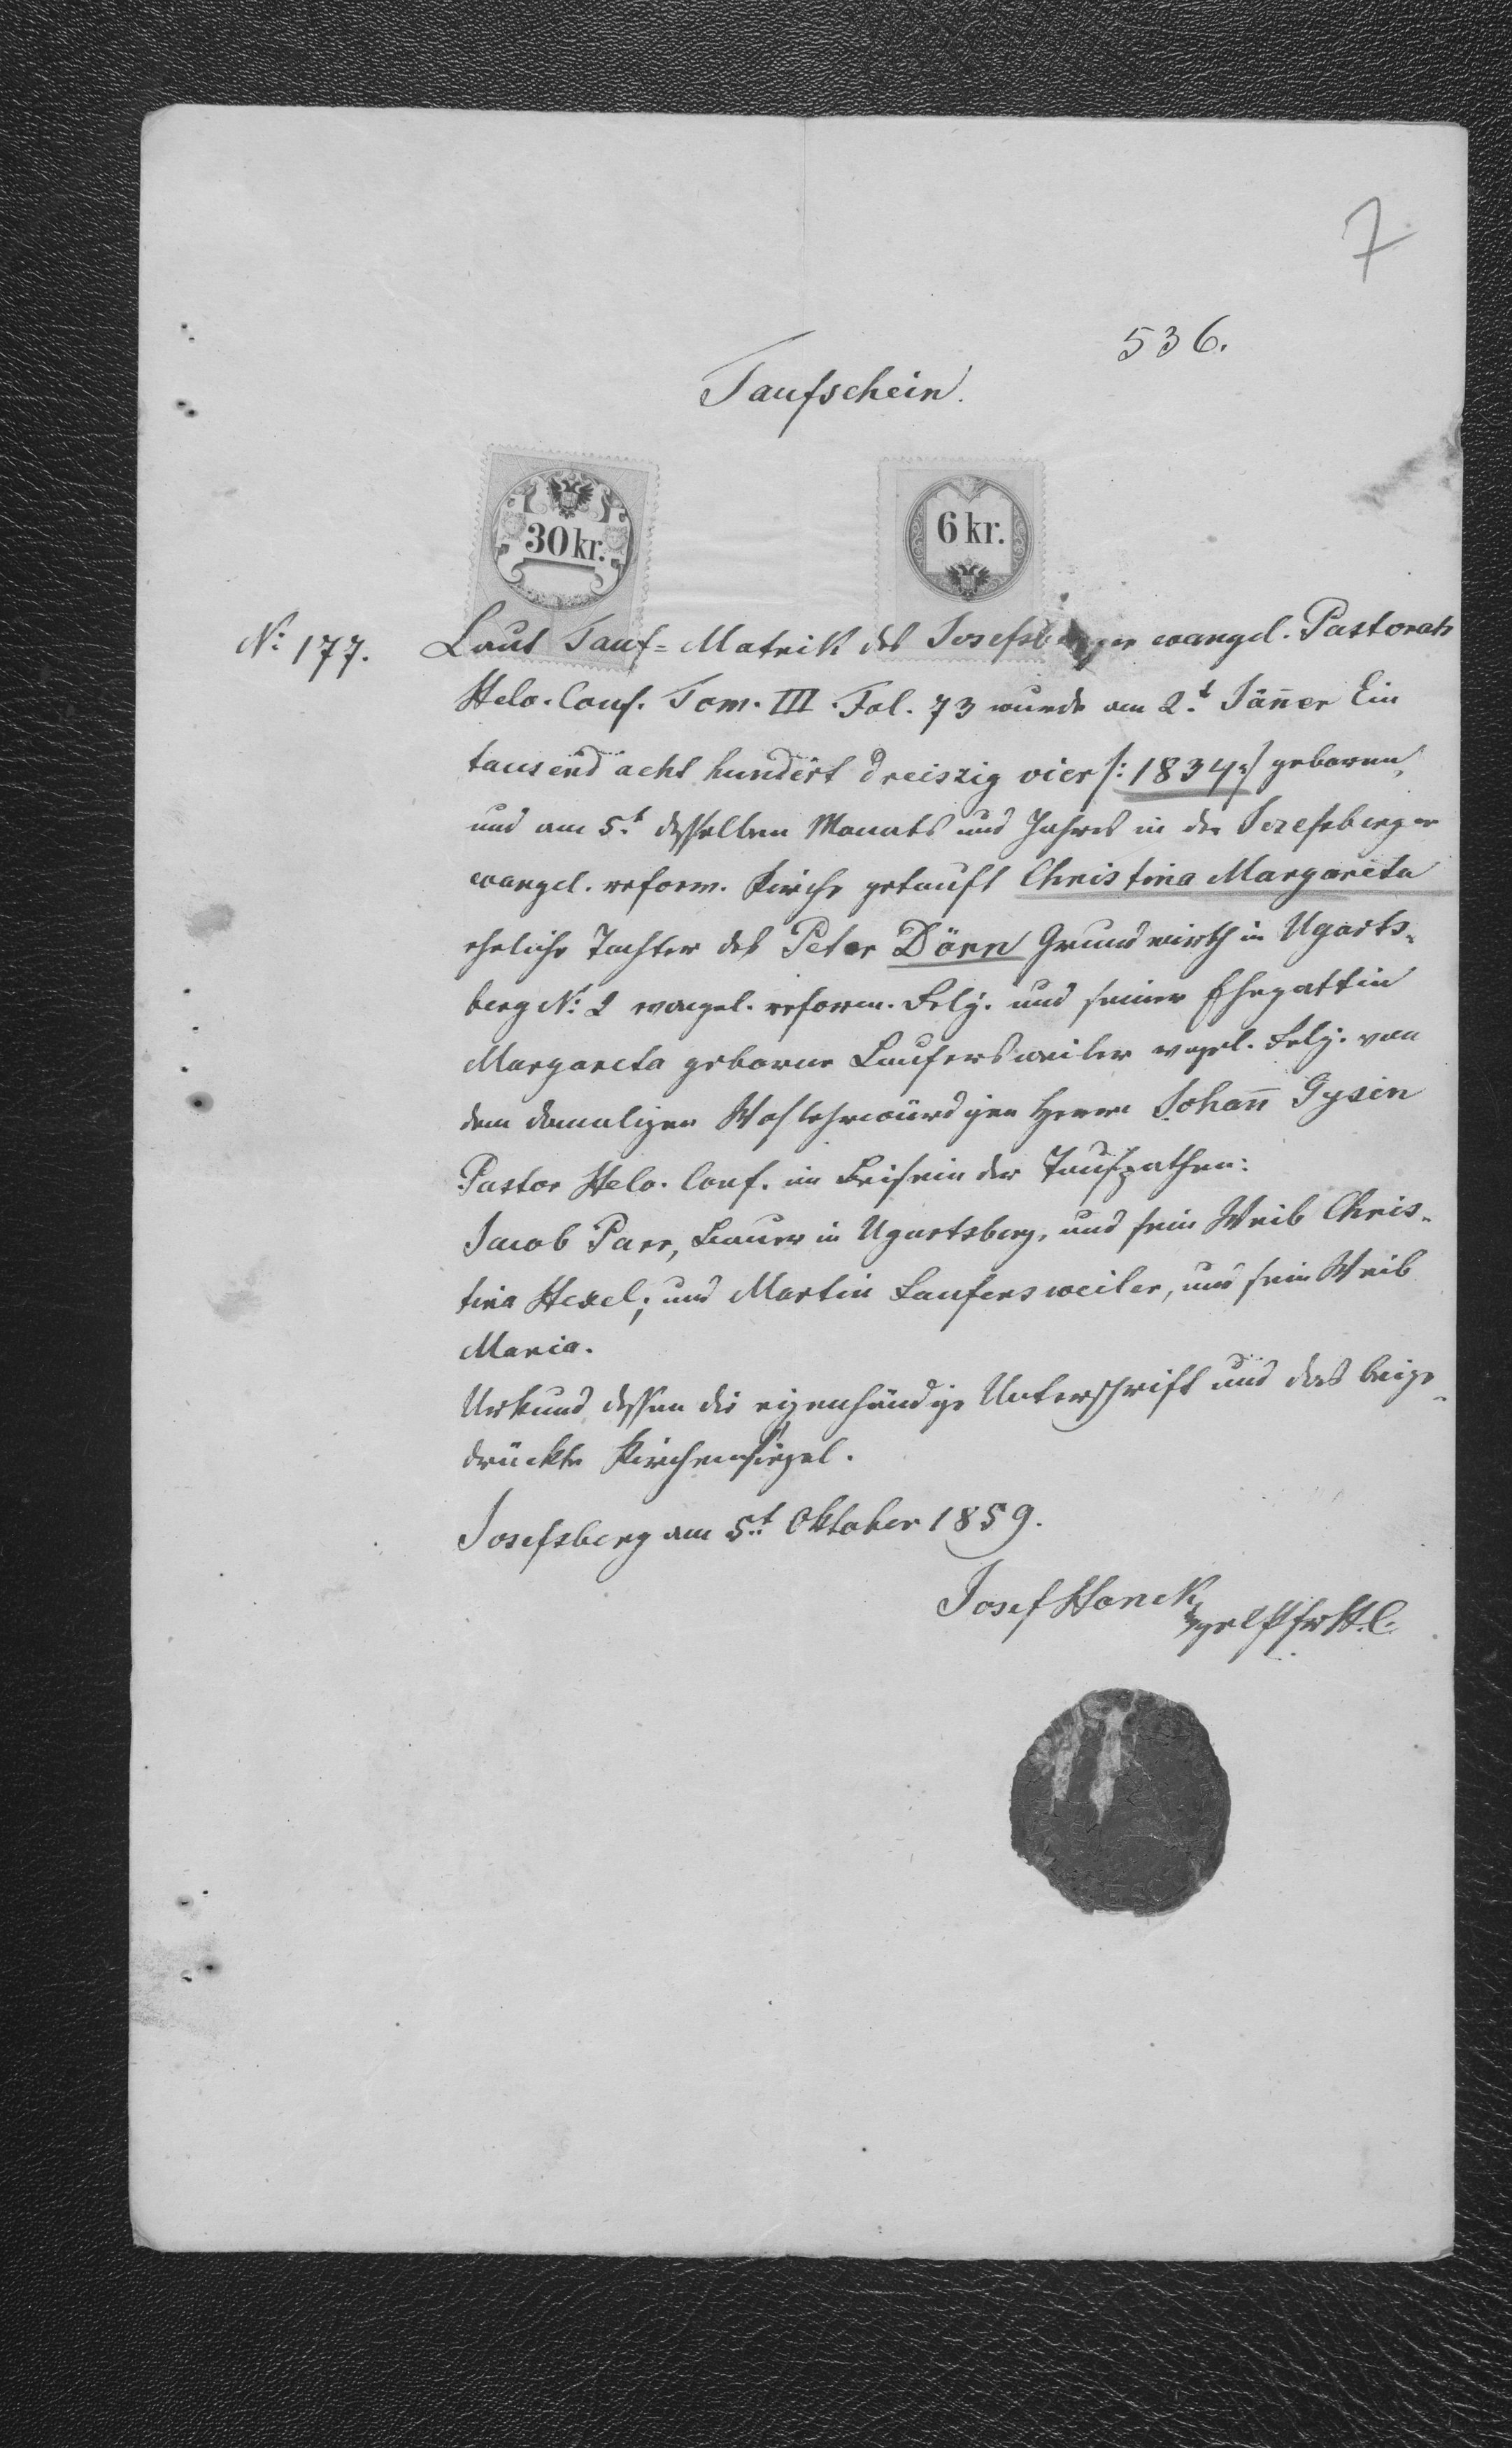 7
536.
Taufschein.
30 kr.
6 kr.
N: 177.
Laut Tauf-Matrik des Josefsberger evangel. Pastorats
Helv. Conf. Tom. III. Fol. 73 wurde am 2.t Jäner Ein
tausend acht hundert dreiszig vier /: 1834 :/ geboren,
und am 5.t desselben Monats und Jahres in der Josefsberger
evangel. reform. Kirche getauft Christina Margareta
eheliche Tochter des Peter Dörn Grundwirth in Ugarts-
berg N: 2 evangel. reform. Relg. und seiner Ehegattin
Margareta geborne Laufersweiler evgel. Relg. von
dem damaligen Wohlehrwürdigen Herrn Johann Gysin
Pastor Helv. Conf. im Beisein der Taufpathen:
Jacob Parr, Bauer in Ugartsberg, und sein Weib Chris-
tina Hexel; und Martin Laufersweiler, und sein Weib
Maria.
Urkund dessen die eigenhändige Unterschrift und das beige-
drückte Kirchensiegel.
Josefsberg am 5.t Oktober 1859.
Josef Hanek
H. C.